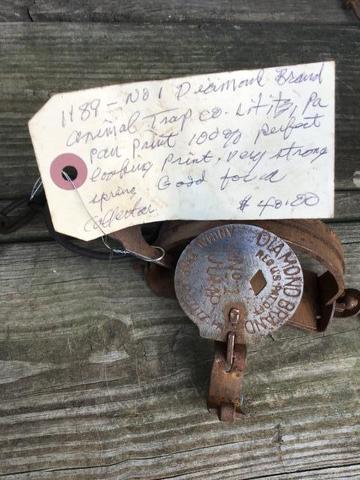 1189 - No 1 Diamond Brand
animal Trap co. Lititz, Pa
Pan Print 100% perfect
looking print. very strong
spring Good for a
collector $40.00
DIAMOND BRAND
REG US PAT OFF
NO 1
JUMP
ANIMAL